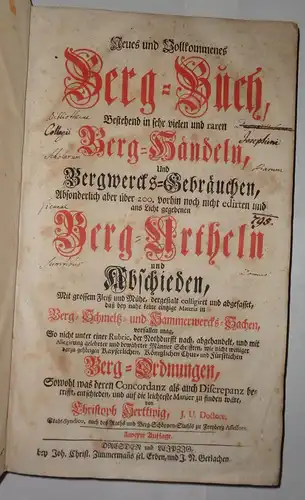 Neues und Vollkommenes
Berg-Buch,
Bestehend in sehr vielen und raren
Berg-Händeln,
Und
Bergwercks-Gebräuchen,
Absonderlich aber über 200. vorhin noch nicht edirten und
ans Licht gegebenen
Berg-Urtheln
und
Abschieden,
Mit grossem Fleiß und Mühe, dergestalt colligirt und abgefasset,
daß bey nahe keine eintzige Materie in
Berg-Schmeltz- und Hammerwercks-Sachen,
vorfallen mag,
So nicht unter einer Rubric, der Nothdurfft nach, abgehandelt, und mit
Allegirung gelehrter und bewährter Männer Schrifften, wie nicht weniger
derzu gehörigen Kayserlichen, Königlichen Chur- und Fürstlichen
Berg-Ordnungen,
Sowohl was deren Concordanz als auch Discrepanz be-
trifft, entschieden, und auf die leichteste Manier zu finden wäre,
von
Christoph Herttwig, J. U. Doctore,
Stadt-Syndico, auch des Raths und Berg-Schöppen-Stuhls zu Freyberg Assessore.
Zweyte Auflage.
DRESDEN und LEIPZIG,
bey Joh. Christ. Zimmermanns sel. Erben, und J. N. Gerlachen
Bibliothecae
Collegii
Scholarum
Josephini
Piarum
795.